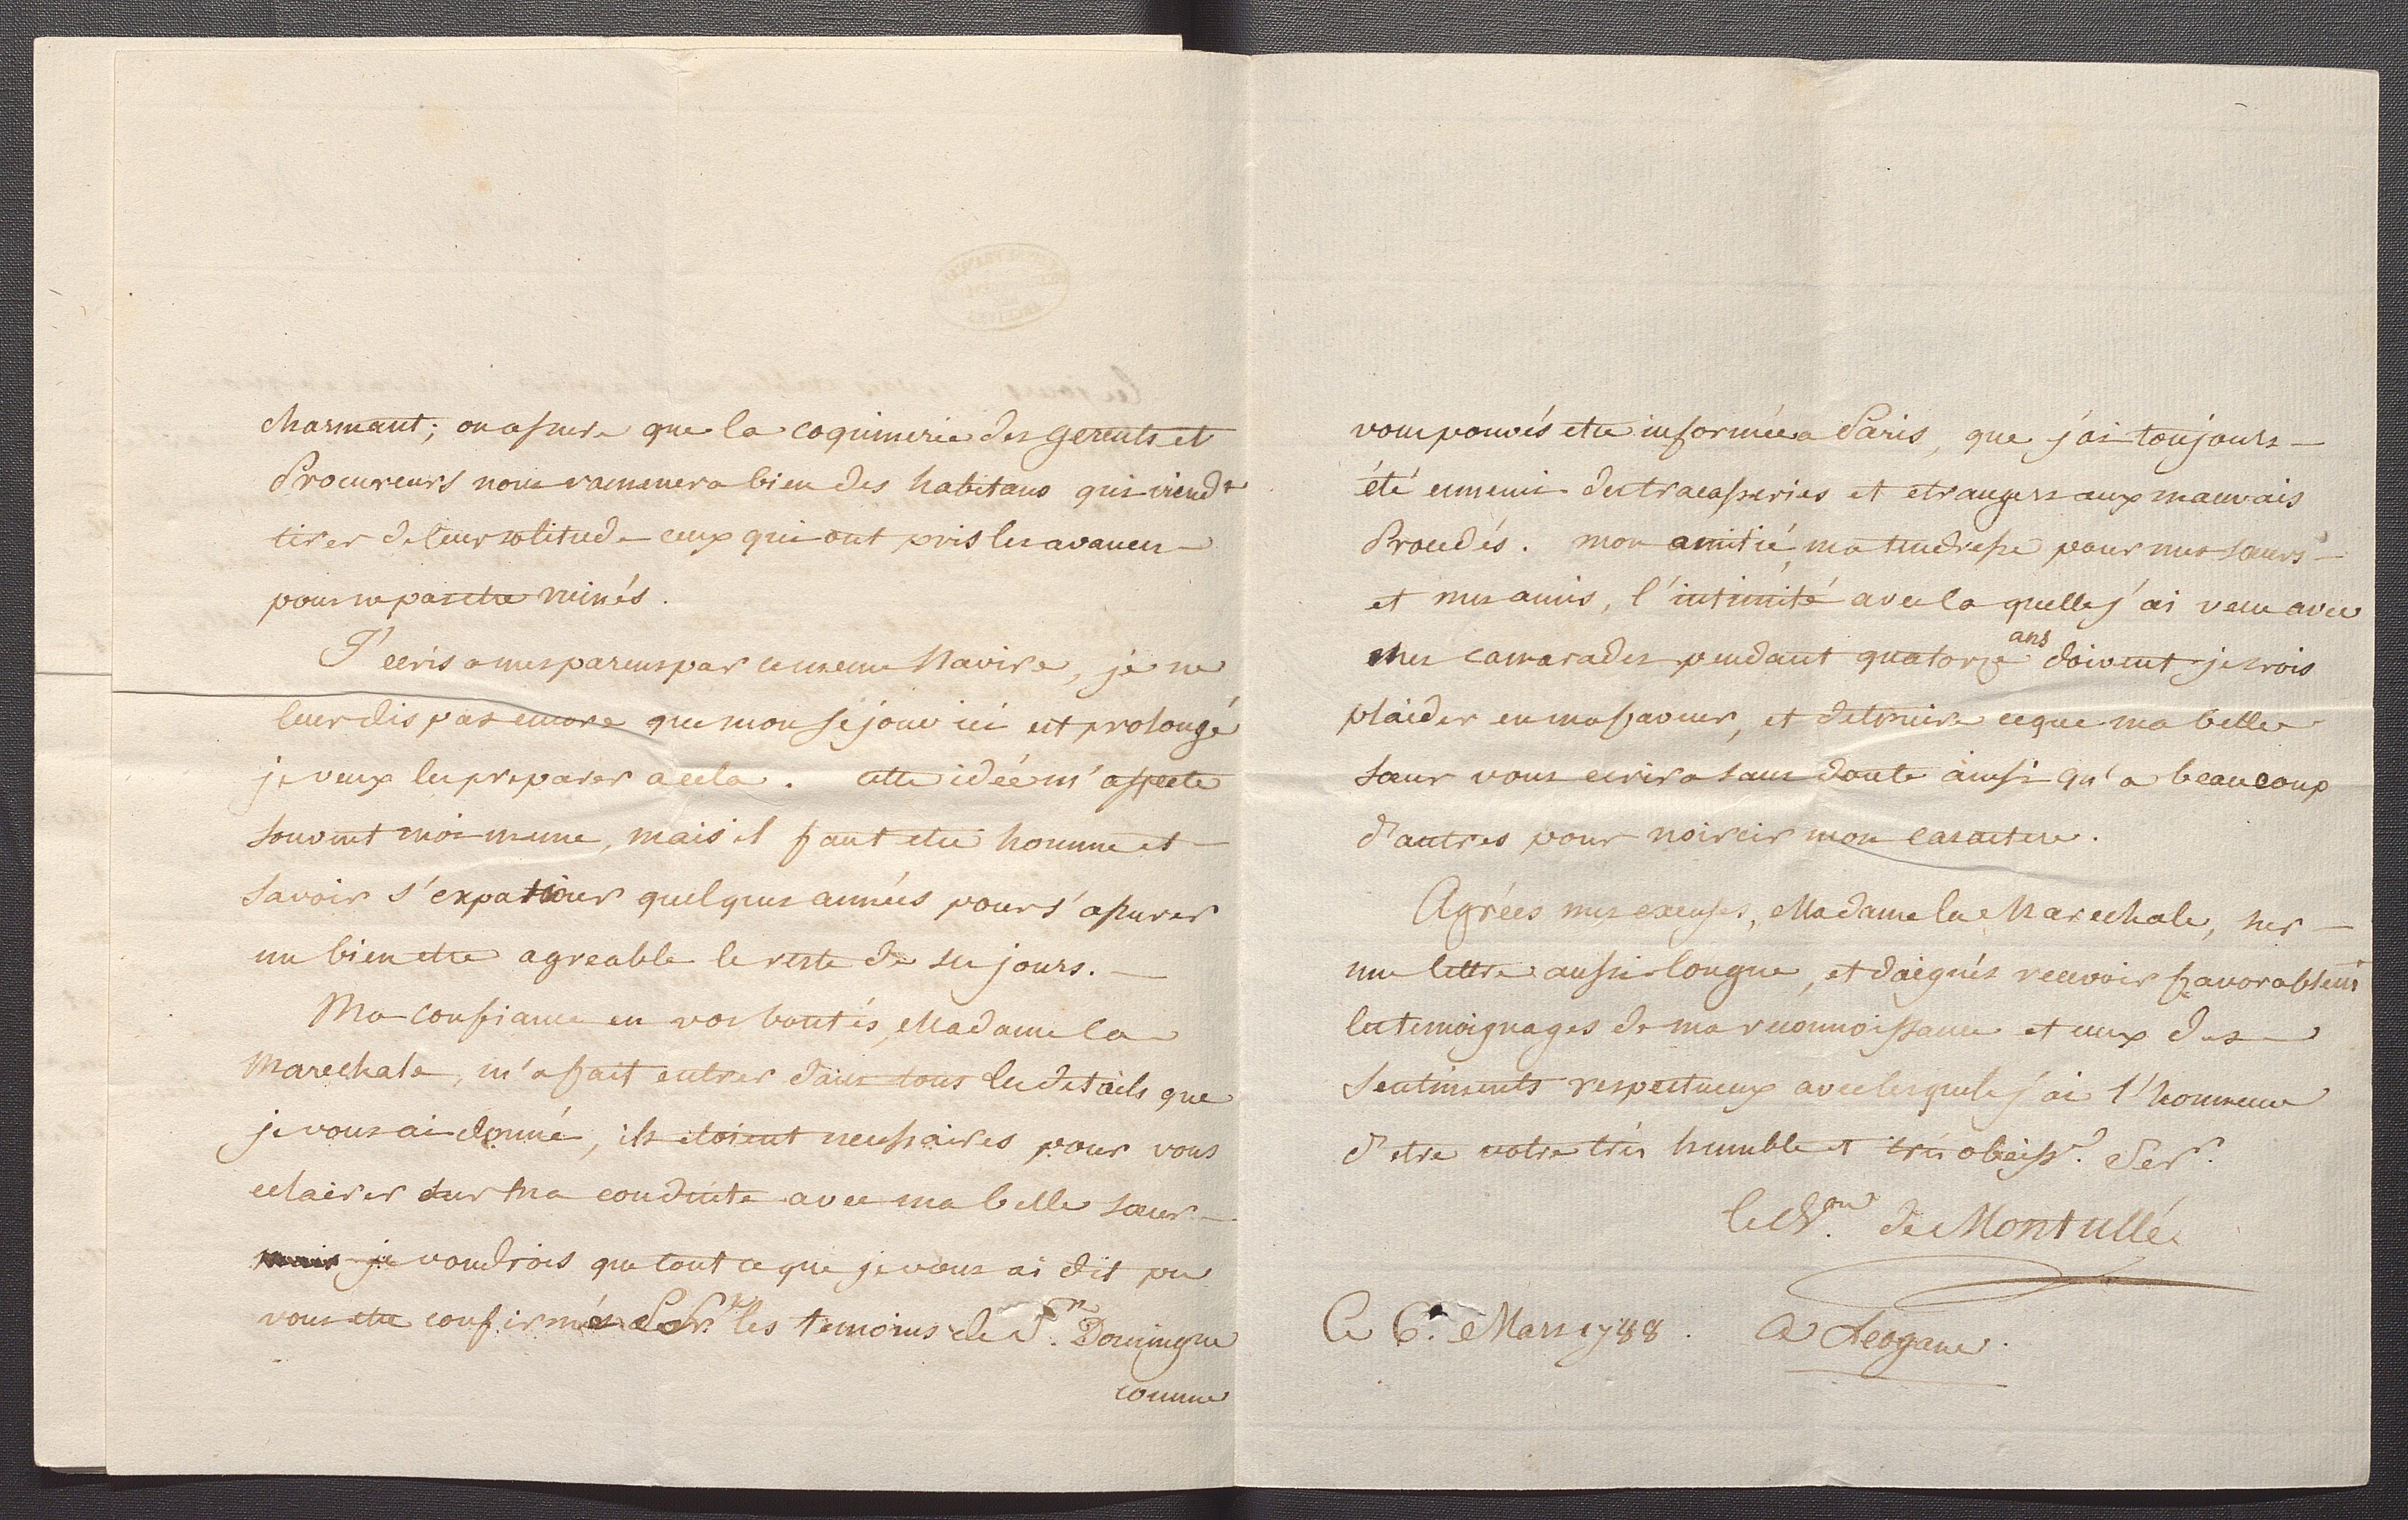 charmant; on assure que la coquinerie des gerents et
Procureurs nous ramenera bien des habitans qui viendt
tirer de leur solitude ceux qui ont pris les avances
pour reparetre ruinés.
J'ecris a mes parens par ce meme Navire, je ne
leur dis pas encore que mon sejour ici est prolongé
je veux les preparer a cela. cette idée m'affecte
souvent moi meme, mais il faut etre homme et
savoir s'expatrier quelques années pour s'assurer
un bien etre agreable le reste de ses jours.
Ma confiance en vos bontés, Madame la
Marechale, m'a fait entrer dans tous les details que
je vous ai donné, ils etoient necessaires pour vous
eclairer sur ma conduite avec ma belle sœur
mais je voudrois que tout ce que je vous ai dit pu
vous etre confirmés les temoins de St. Domingue
comme
vous pouvés etre informée a Paris, que j'ai toujours
été ennemi des tracasseries et etrangers aux mauvais
Procedés. mon amitié, ma tendresse pour mes sœurs
et mes amis, l'intimité avec la quelle j'ai vecu avec
mes camarades pendant quatorze ans doivent je crois
plaider en ma faveur, et detruire ce que ma belle
sœur vous ecrira sans doute ainsi qu'a beaucoup
d'autres pour noircir mon caractere.
Agrées mes excuses, Madame la Marechale, sur
une lettre aussi longue, et daignés recevoir favorablemt
les temoignages de ma reconnoissance et ceux des
sentiments respectueux avec lesquels j'ai l'honneur
d'etre votre très humble et très obéisst. Serr.
le chr. de Montullé
Ce 6. Mars 1788. a Leogane.